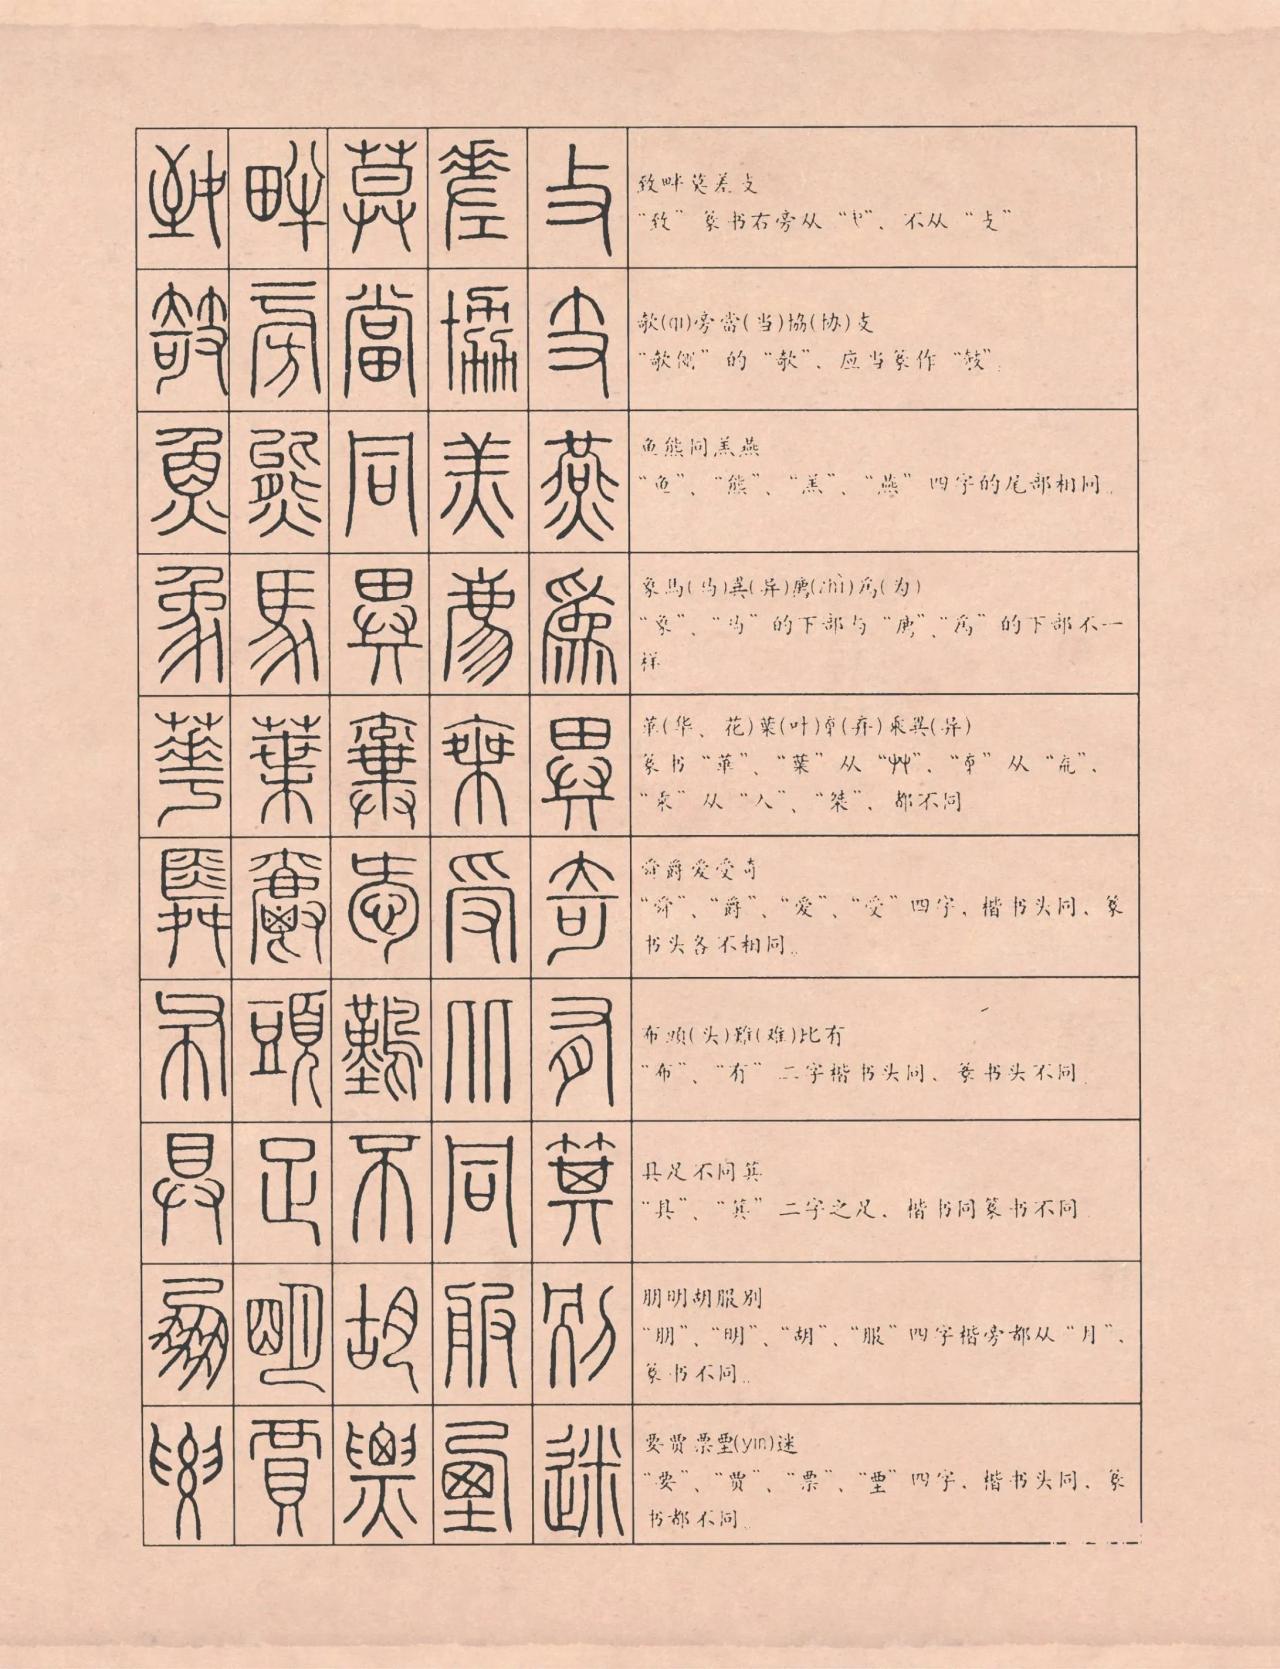 致畔莫差攴
“致”篆书右旁从“”、不从“攴”
欹(qī)旁當(当)協(协)攱
“欹侧”的“欹”、应当篆作“攲”。
鱼熊同羔燕
“鱼”、“熊”、“羔”、“燕”四字的尾部相同。
象馬(马)異(异)廌(zhì)爲(为)
“象”、“马”的下部与“廌”、“爲”的下部不一
样
華(华、花)葉(叶)棄(弃)乘異(异)
篆书“華”、“葉”从“艸”、“棄”从“𠫓”、
“乘”从“人”、“桀”、都不同
舜爵爱受奇
“舜”、“爵”、“爱”、“受”四字、楷书头同、篆
书头各不相同。
布頭(头)難(难)比有
“布”、“有”二字楷书头同、篆书头不同
具足不同箕
“具”、“箕”二字之足、楷书同篆书不同
朋明胡服别
“朋”、“明”、“胡”、“服”四字楷旁都从“月”、
篆书不同。
要贾票垔(yīn)迷
“要”、“贾”、“票”、“垔”四字、楷书头同、篆
书都不同。